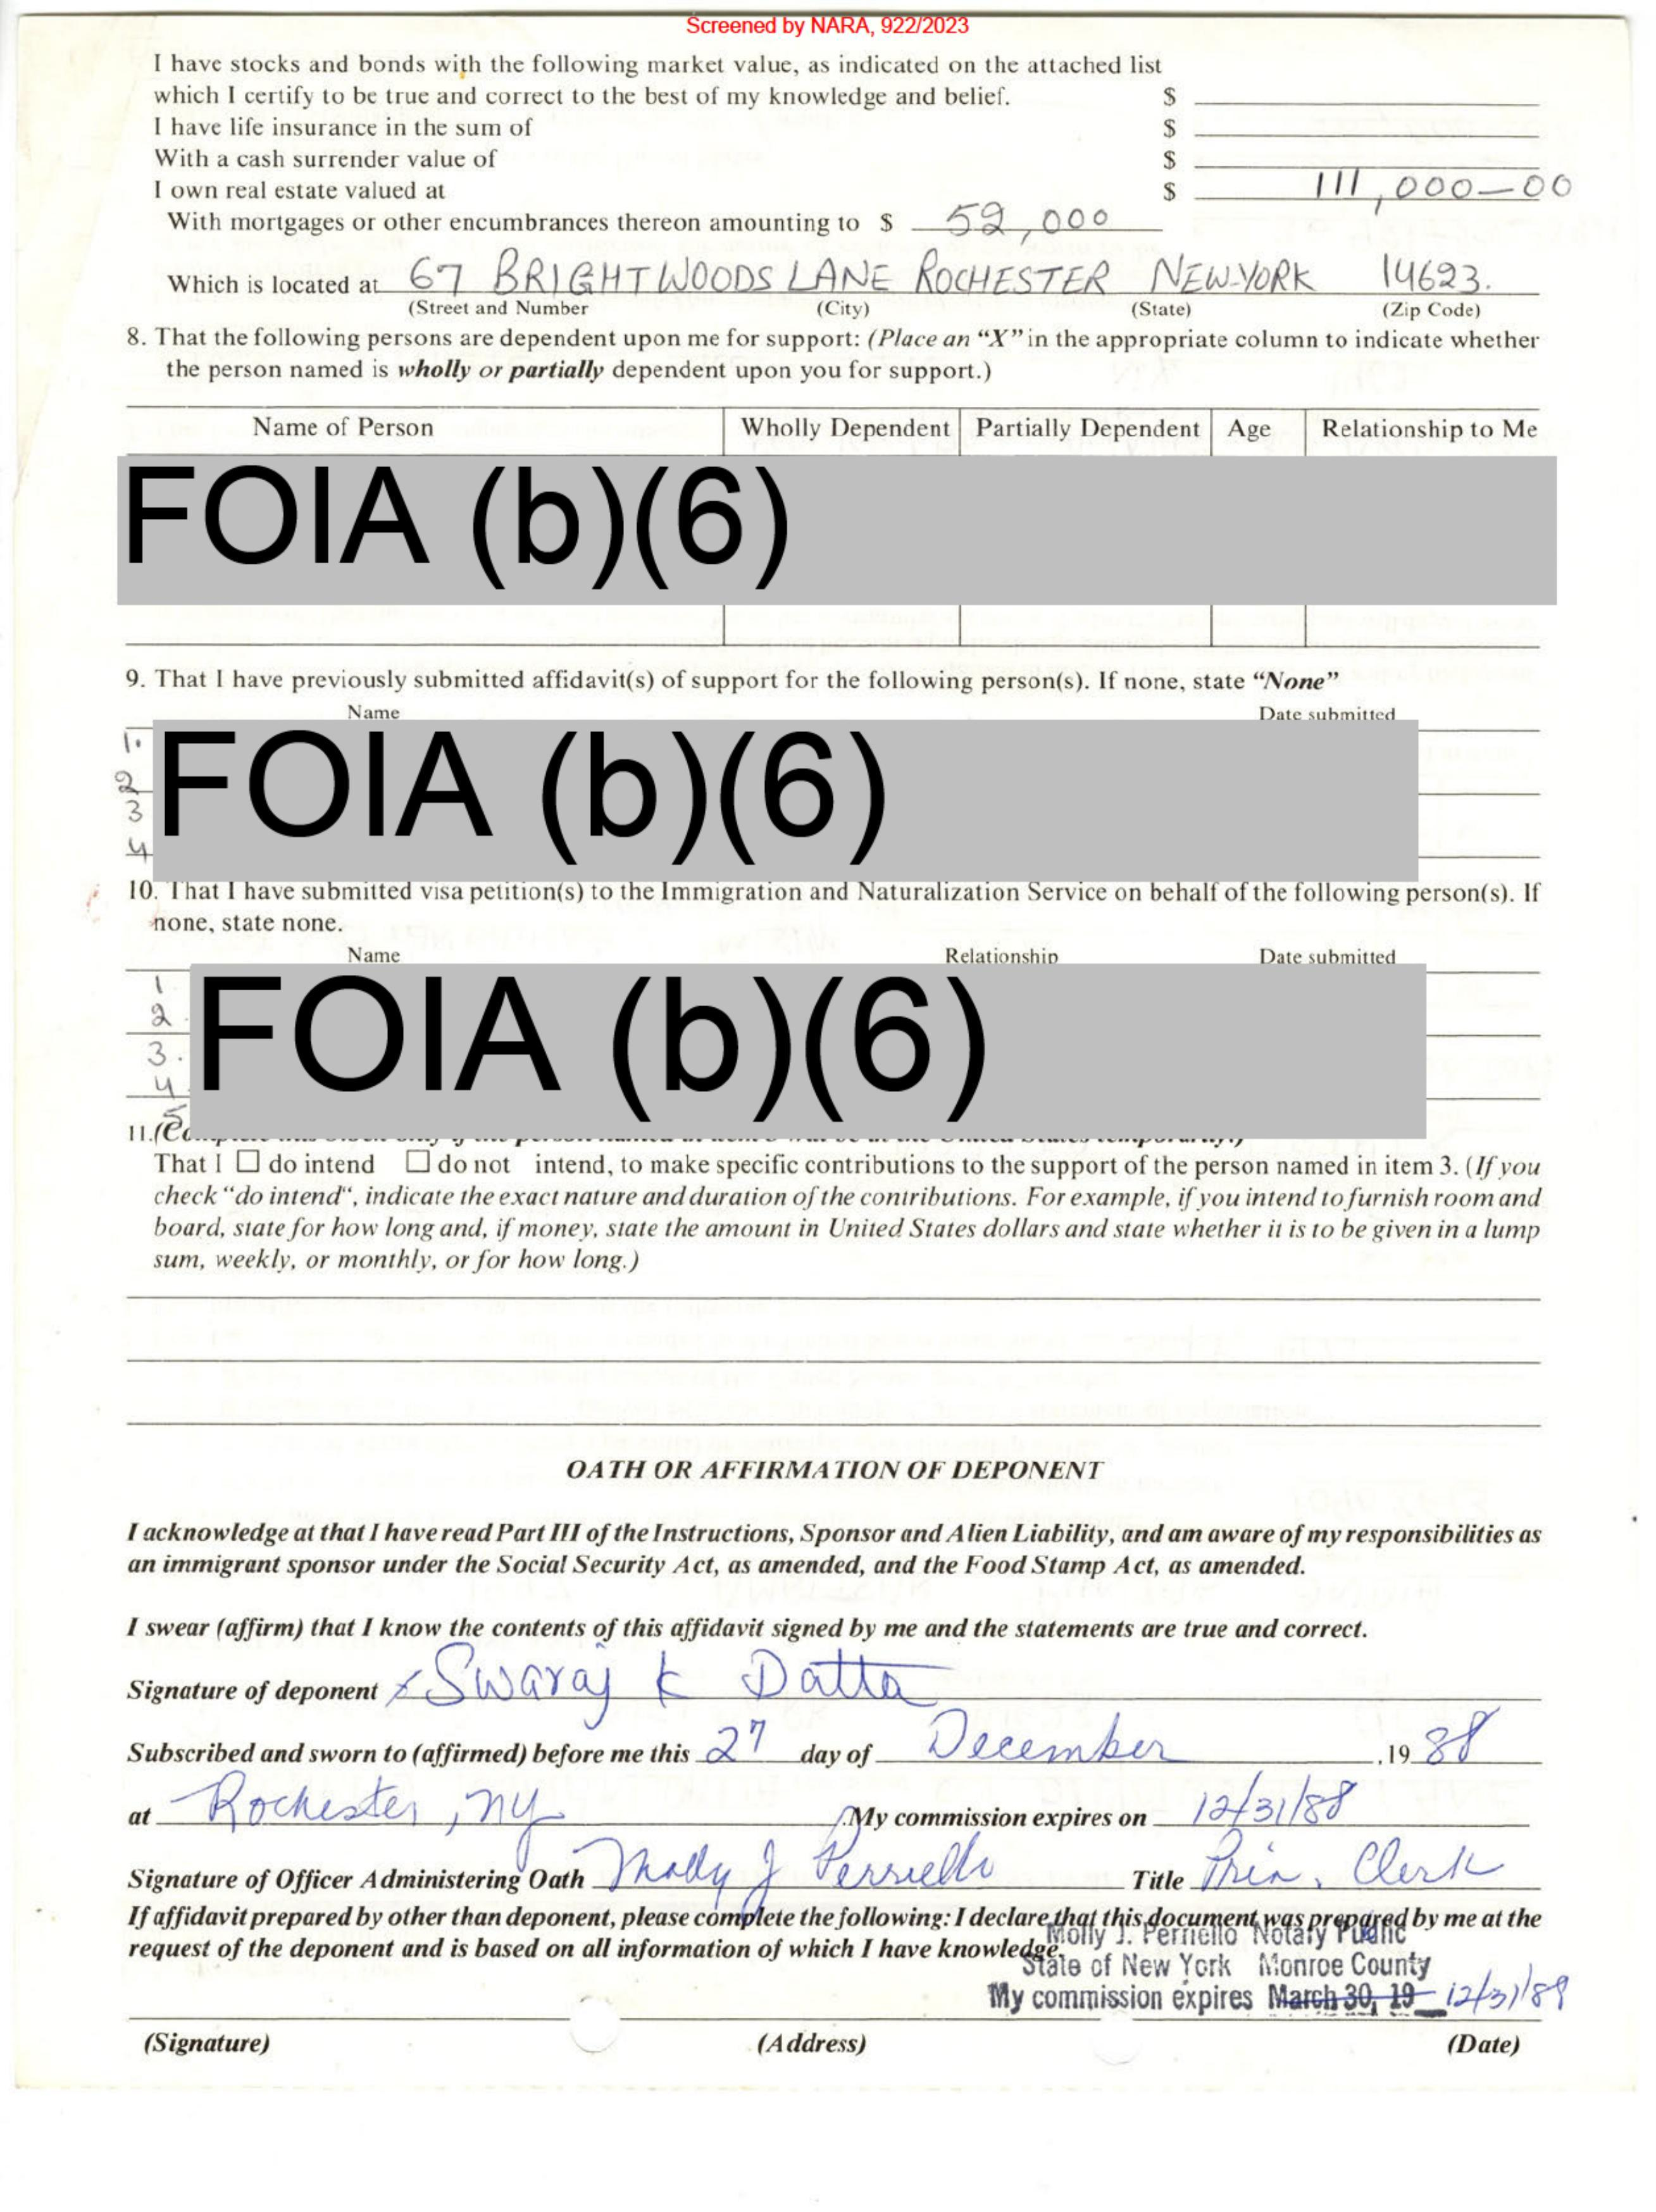 Screened by NARA, 922/2023
I have stocks and bonds with the following market value, as indicated on the attached list
which I certify to be true and correct to the best of my knowledge and belief. $
I have life insurance in the sum of $
With a cash surrender value of $
I own real estate valued at $ 111,000—00
With mortgages or other encumbrances thereon amounting to $ 52,000
Which is located at 67 BRIGHTWOODS LANE ROCHESTER NEW-YORK 14623.
(Street and Number (City) (State) (Zip Code)
8. That the following persons are dependent upon me for support: (Place an “X” in the appropriate column to indicate whether
the person named is wholly or partially dependent upon you for support.)
Name of Person Wholly Dependent Partially Dependent Age Relationship to Me
FOIA (b)(6)
9. That I have previously submitted affidavit(s) of support for the following person(s). If none, state “None”
Name Date submitted
1.
2
3
4
FOIA (b)(6)
10. That I have submitted visa petition(s) to the Immigration and Naturalization Service on behalf of the following person(s). If
none, state none.
Name Relationship Date submitted
1
2
3.
4
5
FOIA (b)(6)
11.
That I ☐ do intend ☐ do not intend, to make specific contributions to the support of the person named in item 3. (If you
check “do intend“, indicate the exact nature and duration of the contributions. For example, if you intend to furnish room and
board, state for how long and, if money, state the amount in United States dollars and state whether it is to be given in a lump
sum, weekly, or monthly, or for how long.)
OATH OR AFFIRMATION OF DEPONENT
I acknowledge at that I have read Part III of the Instructions, Sponsor and Alien Liability, and am aware of my responsibilities as
an immigrant sponsor under the Social Security Act, as amended, and the Food Stamp Act, as amended.
I swear (affirm) that I know the contents of this affidavit signed by me and the statements are true and correct.
Signature of deponent x Swaraj K Datta
Subscribed and sworn to (affirmed) before me this 27 day of December ,19 88
at Rochester, NY .My commission expires on 12/31/88
Signature of Officer Administering Oath Molly J Perriello Title Prin. Clerk
If affidavit prepared by other than deponent, please complete the following: I declare that this document was prepared by me at the
request of the deponent and is based on all information of which I have knowledge.
Molly J. Perriello Notary Public
State of New York Monroe County
My commission expires March 30, 19 12/31/89
(Signature) (Address) (Date)